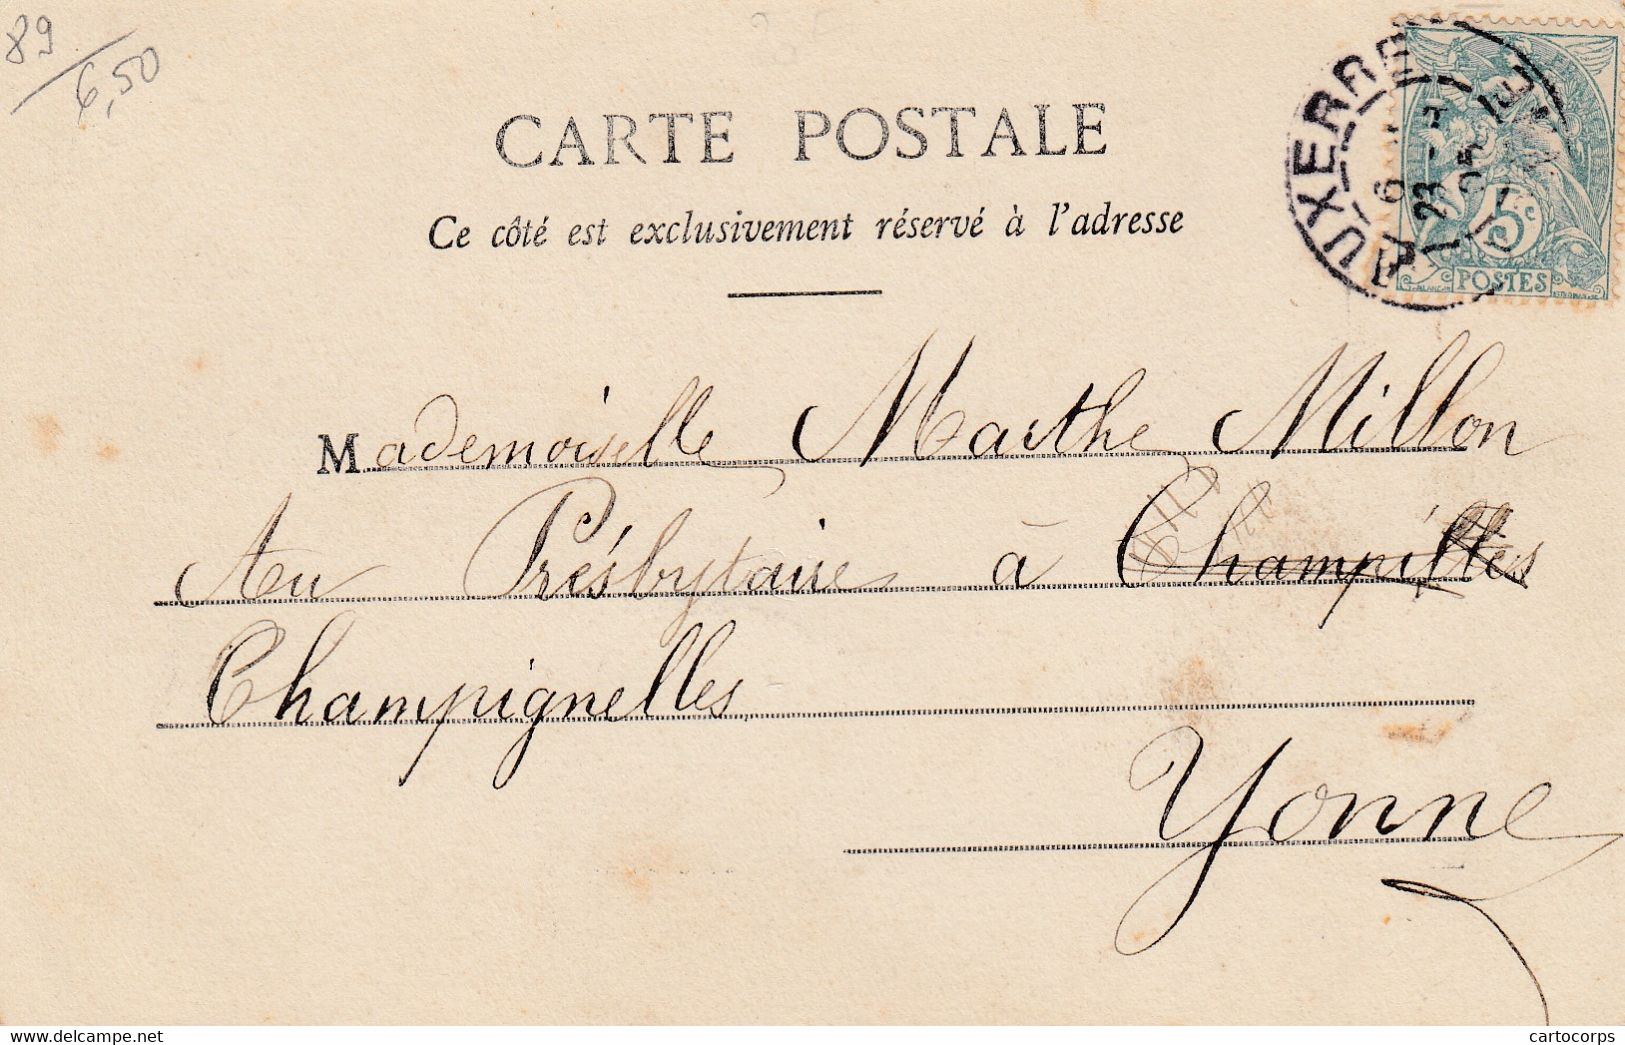 89
6,50
CARTE POSTALE
Ce côté est exclusivement réservé à l'adresse
AUXERRE
23
5c
POSTES
Mademoiselle Marthe Millon
Au Présbytaire à Champilles
Champignelles
Yonne
cartocorps